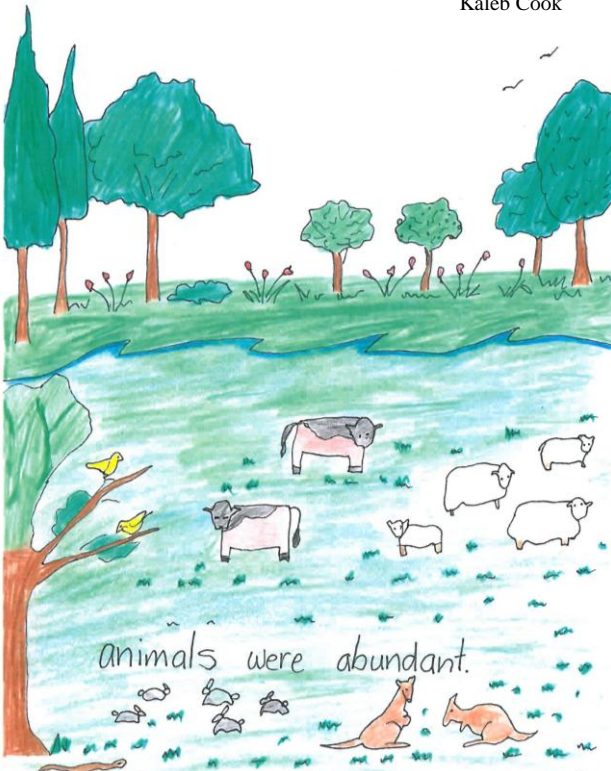 Kaleb Cook
animals were abundant.